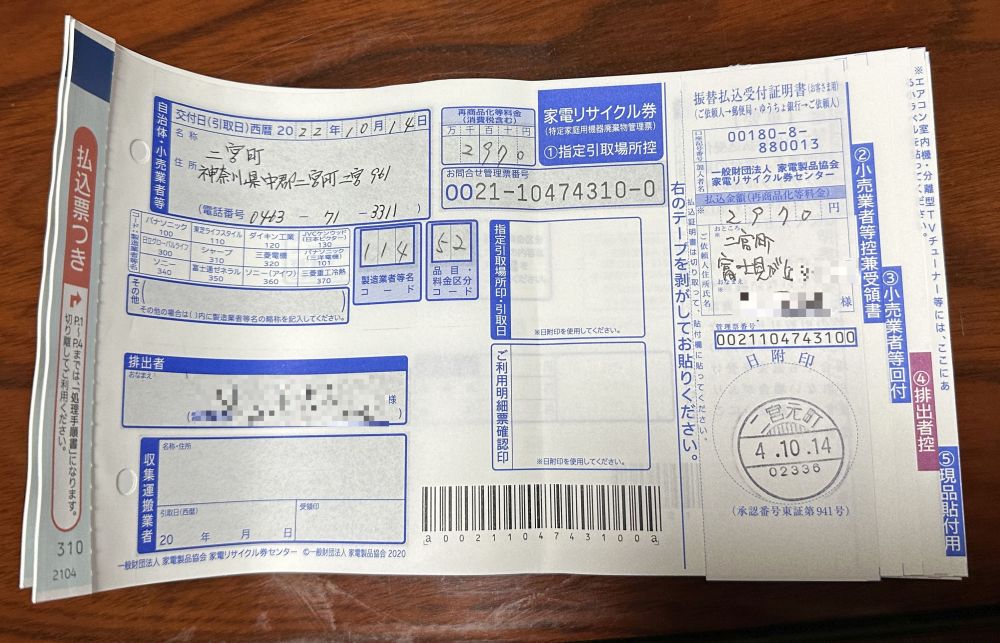 払込票つき
P.1～P.4までは、「処理手順書」になります。
切り離してご利用ください。
310
2104
自治体・小売業者等
交付日(引取日)西暦2022年10月14日
名称
二宮町
住所
神奈川県中郡二宮町二宮961
(電話番号 0463 - 71 - 3311)
再商品化等料金
(消費税含む)
万 千 百 十 円
2970
家電リサイクル券
(特定家庭用機器廃棄物管理票)
①指定引取場所控
お問合せ管理票番号
0021-10474310-0
コード・製造業者等名
パナソニック 100
東芝ライフスタイル 110
ダイキン工業 120
JVCケンウッド(日本ビクター) 130
日立グローバルライフ 300
シャープ 310
三菱電機 320
パナソニック(三洋電機) 101
ソニー 340
富士通ゼネラル 350
ソニー(アイワ) 360
三菱重工冷熱 370
その他
その他の場合は( )内に製造業者等名の略称を記入してください。
114
製造業者等名
コード
52
品目・
料金区分
コード
指定引取場所印・引取日
※日付印を使用してください。
ご利用明細票確認印
※日付印を使用してください。
排出者
おなまえ
様
収集運搬業者
名称・住所
引取日(西暦)
20 年 月 日
受領印
a0021104743100a
一般財団法人 家電製品協会 家電リサイクル券センター ©一般財団法人 家電製品協会 2020
右のテープを剥がしてお貼りください。
払込証明書は切り取って、貼付欄に貼ってください。
振替払込受付証明書(お客さま用)
(ご依頼人→郵便局・ゆうちょ銀行→ご依頼人)
00180-8-
880013
一般財団法人 家電製品協会
家電リサイクル券センター
払込金額(再商品化等料金)
2970円
ご依頼人住所氏名
おところ
二宮町
富士見が丘
おなまえ
様
管理票番号
0021104743100
日附印
二宮元町
4.10.14
02336
(承認番号東証第941号)
②小売業者等控兼受領書
③小売業者等回付
④排出者控
⑤現品貼付用
※エアコン室内機・分離型TVチューナー等には、ここにあ